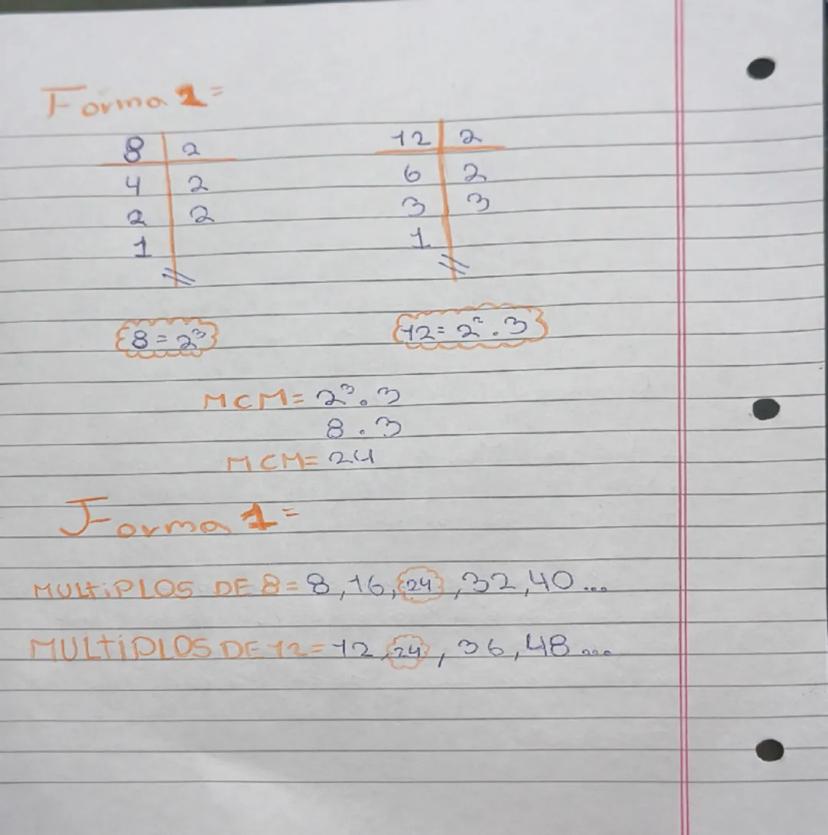 Forma 2=
8 | 2    12 | 2
4 | 2    6 | 2
2 | 2    3 | 3
1 |    1 |
8 = 2³    12 = 2² . 3
MCM = 2³ . 3
8 . 3
MCM = 24
Forma 1=
MULTIPLOS DE 8 = 8, 16, 24, 32, 40 ...
MULTIPLOS DE 12 = 12, 24, 36, 48 ...